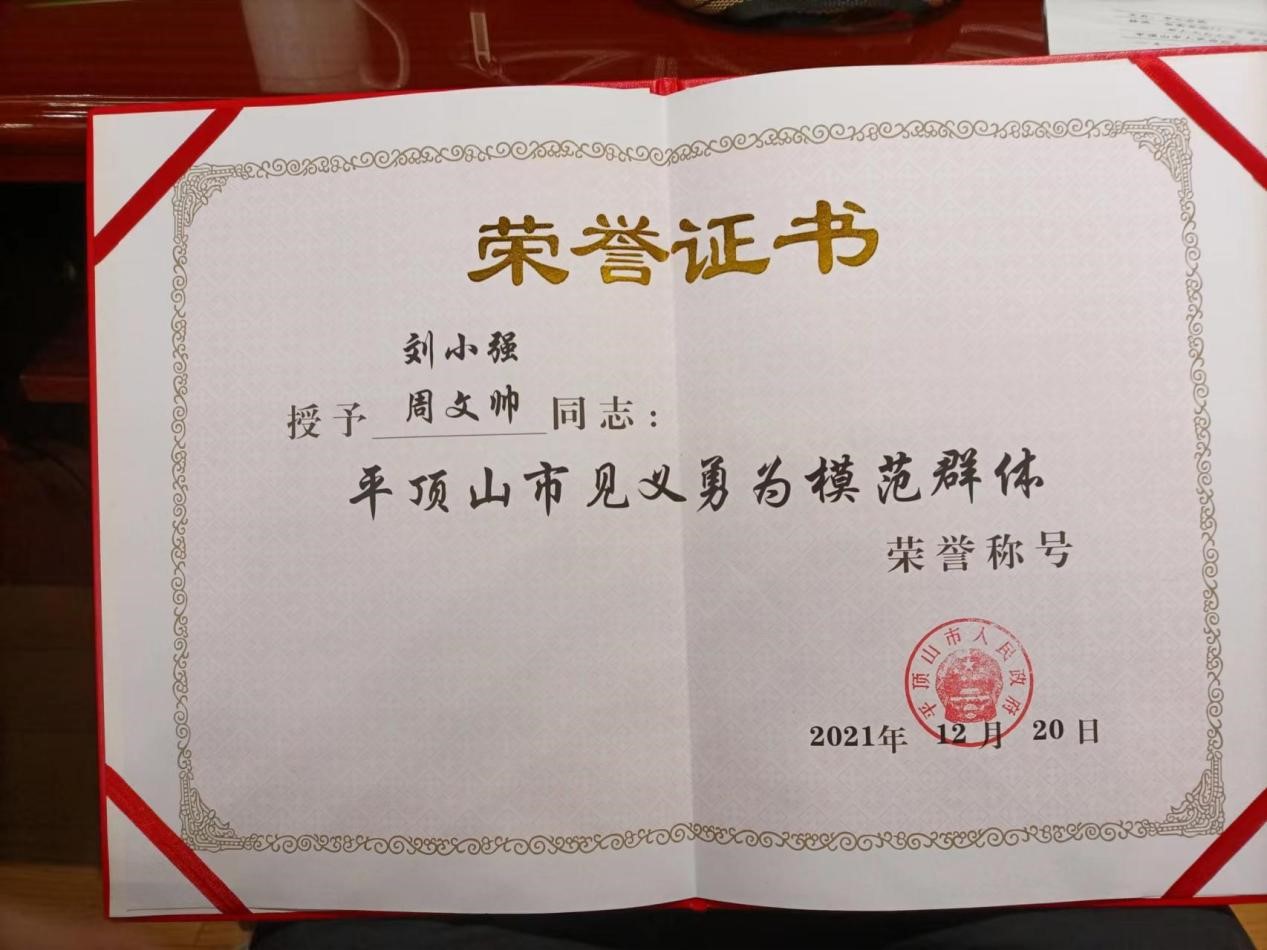 荣誉证书
刘小强
授予 周文帅 同志：
平顶山市见义勇为模范群体
荣誉称号
平顶山市人民政府
2021年 12月 20日